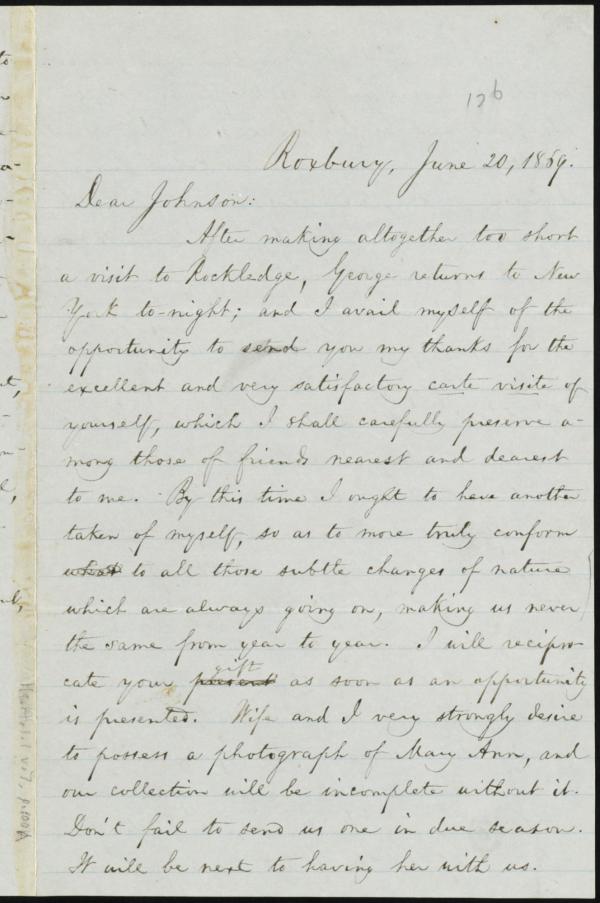 126
Roxbury, June 20, 1869.
Dear Johnson:
After making altogether too short
a visit to Rockledge, George returns to New
York to-night; and I avail myself of the
opportunity to send you my thanks for the
excellent and very satisfactory carte visite of
yourself, which I shall carefully preserve a-
mong those of friends nearest and dearest
to me. By this time I ought to have another
taken of myself, so as to more truly conform
what to all those subtle changes of nature
which are always going on, making us never
the same from year to year. I will recipro-
gift
cate your present as soon as an opportunity
is presented. Wife and I very strongly desire
to possess a photograph of Mary Ann, and
our collection will be incomplete without it.
Don't fail to send us one in due season.
It will be next to having her with us.